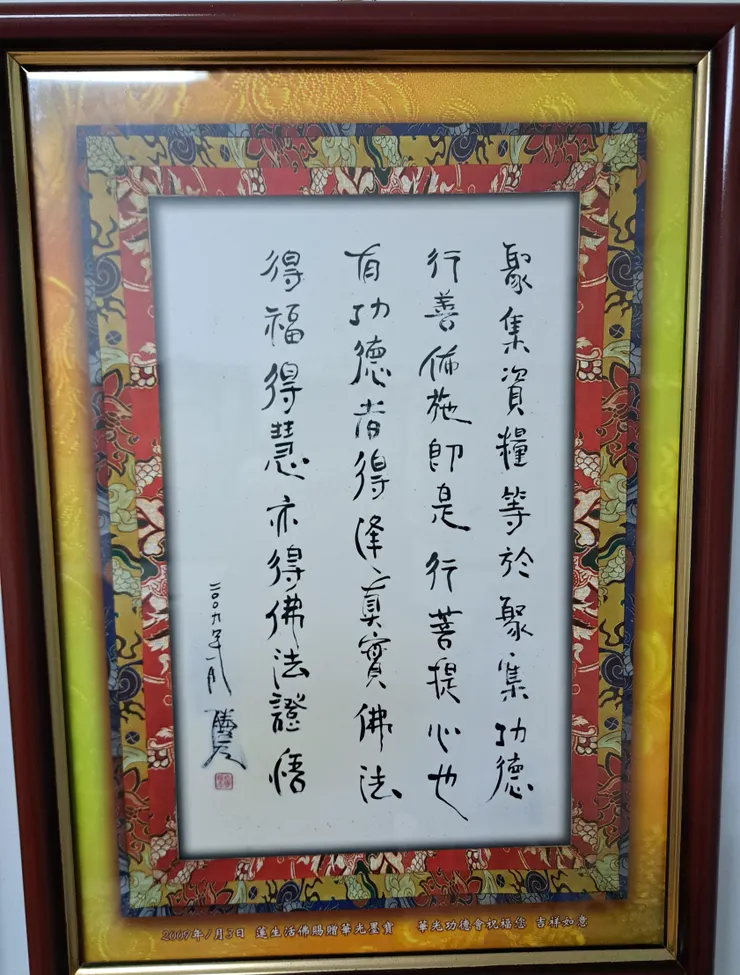 聚集資糧等於聚集功德
行善佈施即是行菩提心也
有功德者得逢真實佛法
得福得慧亦得佛法證悟
二〇〇九年一月 勝彥
2009年1月3日 蓮生活佛賜贈華光墨寶 華光功德會祝福您 吉祥如意